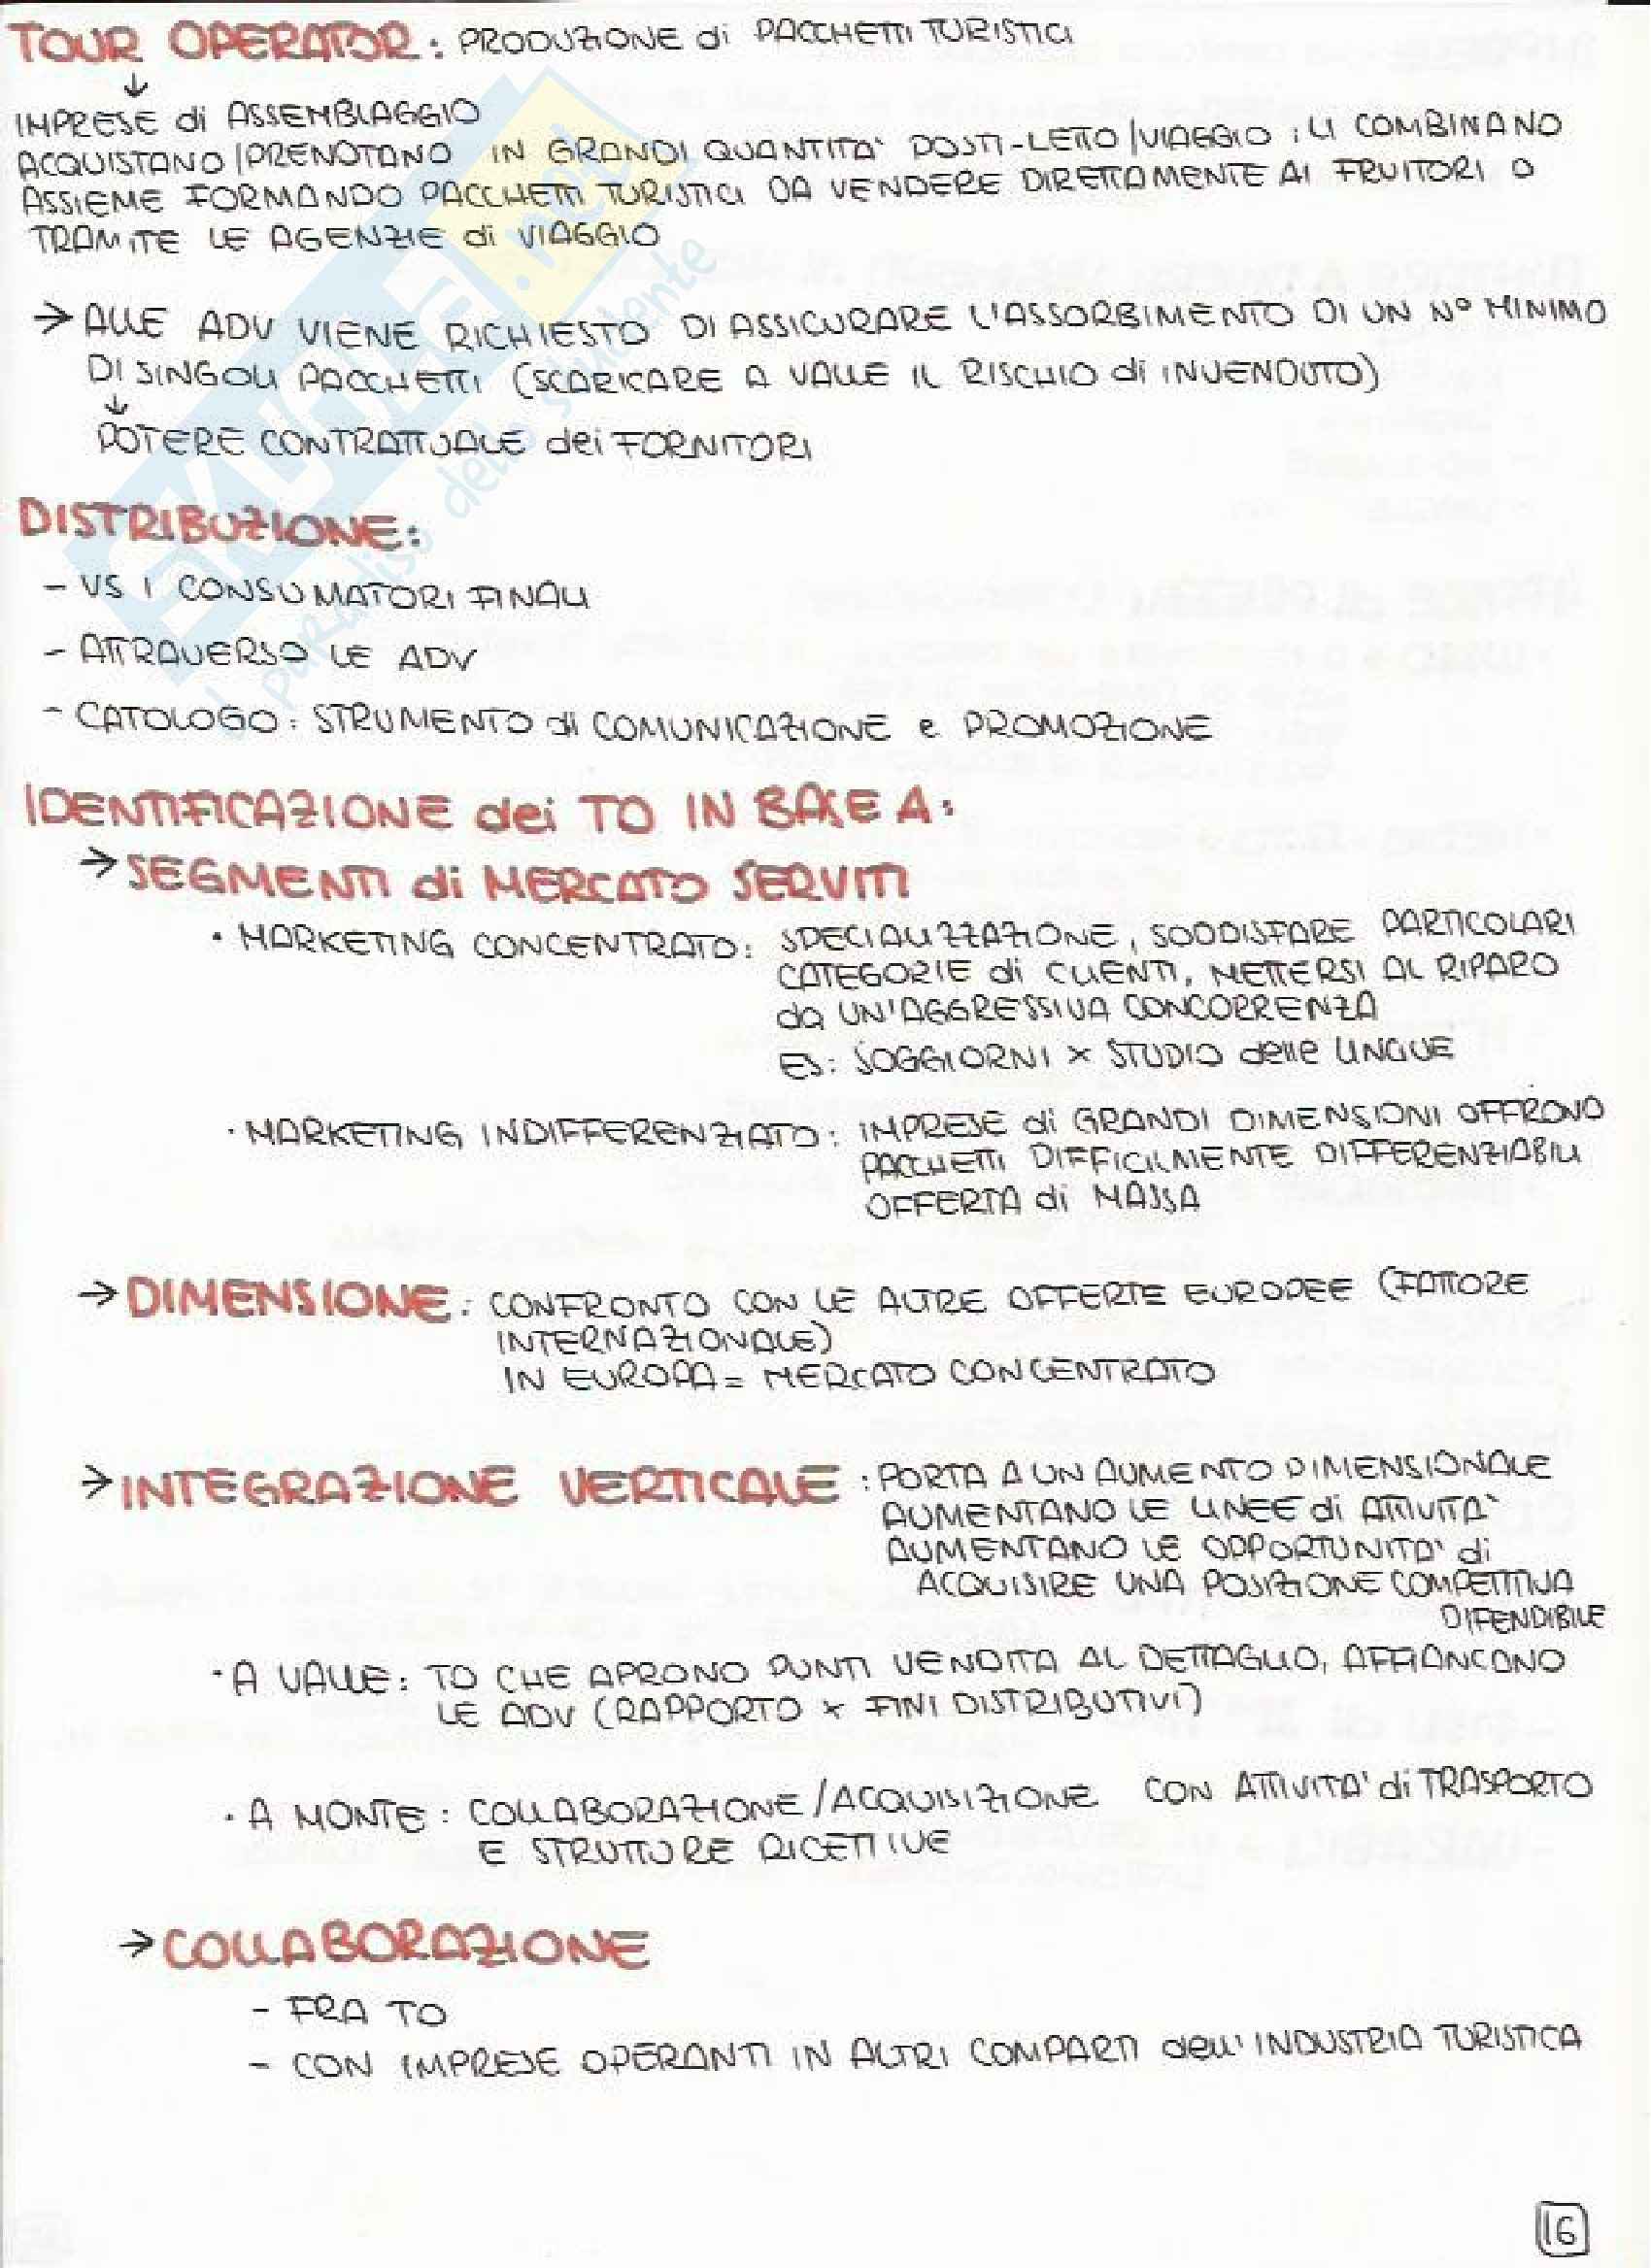 TOUR OPERATOR: PRODUZIONE di PACCHETTI TURISTICI
↓
IMPRESE di ASSEMBLAGGIO
ACQUISTANO/PRENOTANO IN GRANDI QUANTITA' POSTI-LETTO/VIAGGIO; LI COMBINANO
ASSIEME FORMANDO PACCHETTI TURISTICI DA VENDERE DIRETTAMENTE AI FRUITORI O
TRAMITE LE AGENZIE di VIAGGIO
→ ALLE ADV VIENE RICHIESTO DI ASSICURARE L'ASSORBIMENTO DI UN N° MINIMO
DI SINGOLI PACCHETTI (SCARICARE A VALLE IL RISCHIO di INVENDUTO)
↓
POTERE CONTRATTUALE dei FORNITORI
DISTRIBUZIONE:
- VS I CONSUMATORI FINALI
- ATTRAVERSO LE ADV
- CATOLOGO: STRUMENTO di COMUNICAZIONE e PROMOZIONE
IDENTIFICAZIONE dei TO IN BASE A:
→ SEGMENTI di MERCATO SERVITI
• MARKETING CONCENTRATO: SPECIALIZZAZIONE, SODDISFARE PARTICOLARI
CATEGORIE di CLIENTI, METTERSI AL RIPARO
da UN'AGGRESSIVA CONCORRENZA
ES: SOGGIORNI x STUDIO delle LINGUE
• MARKETING INDIFFERENZIATO: IMPRESE di GRANDI DIMENSIONI OFFRONO
PACCHETTI DIFFICILMENTE DIFFERENZIABILI
OFFERTA di MASSA
→ DIMENSIONE: CONFRONTO CON LE ALTRE OFFERTE EUROPEE (FATTORE
INTERNAZIONALE)
IN EUROPA = MERCATO CONCENTRATO
→ INTEGRAZIONE VERTICALE: PORTA A UN AUMENTO DIMENSIONALE
AUMENTANO LE LINEE di ATTIVITA'
AUMENTANO LE OPPORTUNITA' di
ACQUISIRE UNA POSIZIONE COMPETITIVA
DIFENDIBILE
• A VALLE: TO CHE APRONO PUNTI VENDITA AL DETTAGLIO, AFFIANCANO
LE ADV (RAPPORTO x FINI DISTRIBUTIVI)
• A MONTE: COLLABORAZIONE/ACQUISIZIONE CON ATTIVITA' di TRASPORTO
E STRUTTURE RICETTIVE
→ COLLABORAZIONE
- FRA TO
- CON IMPRESE OPERANTI IN ALTRI COMPARTI dell'INDUSTRIA TURISTICA
16
SKUOLA.net
il paradiso dello studente